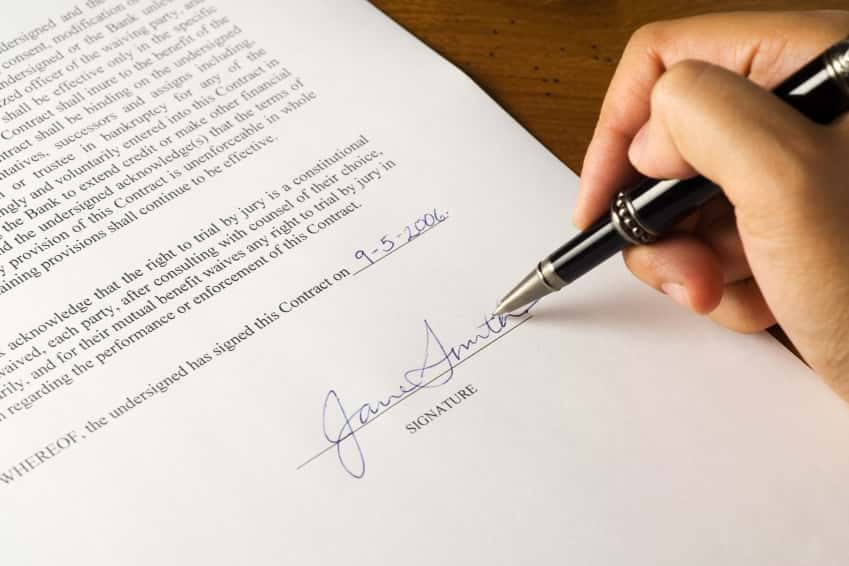 dersigned and the
consent, modification o
ndersigned or the Bank unles
zed officer of the waiving party, and
shall be effective only in the specific
Contract shall inure to the benefit of the
tract shall be binding on the undersigned
ntatives, successors and assigns including,
or trustee in bankruptcy for any of the
ngly and voluntarily entered into this Contract in
the Bank to extend credit or make other financial
d the undersigned acknowledge(s) that the terms of
y provision of this Contract is unenforceable in whole
aining provisions shall continue to be effective.
acknowledge that the right to trial by jury is a constitutional
waived, each party, after consulting with counsel of their choice,
arily, and for their mutual benefit waives any right to trial by jury in
n regarding the performance or enforcement of this Contract.
WHEREOF, the undersigned has signed this Contract on 9-5-2006.
Jane Smith
SIGNATURE